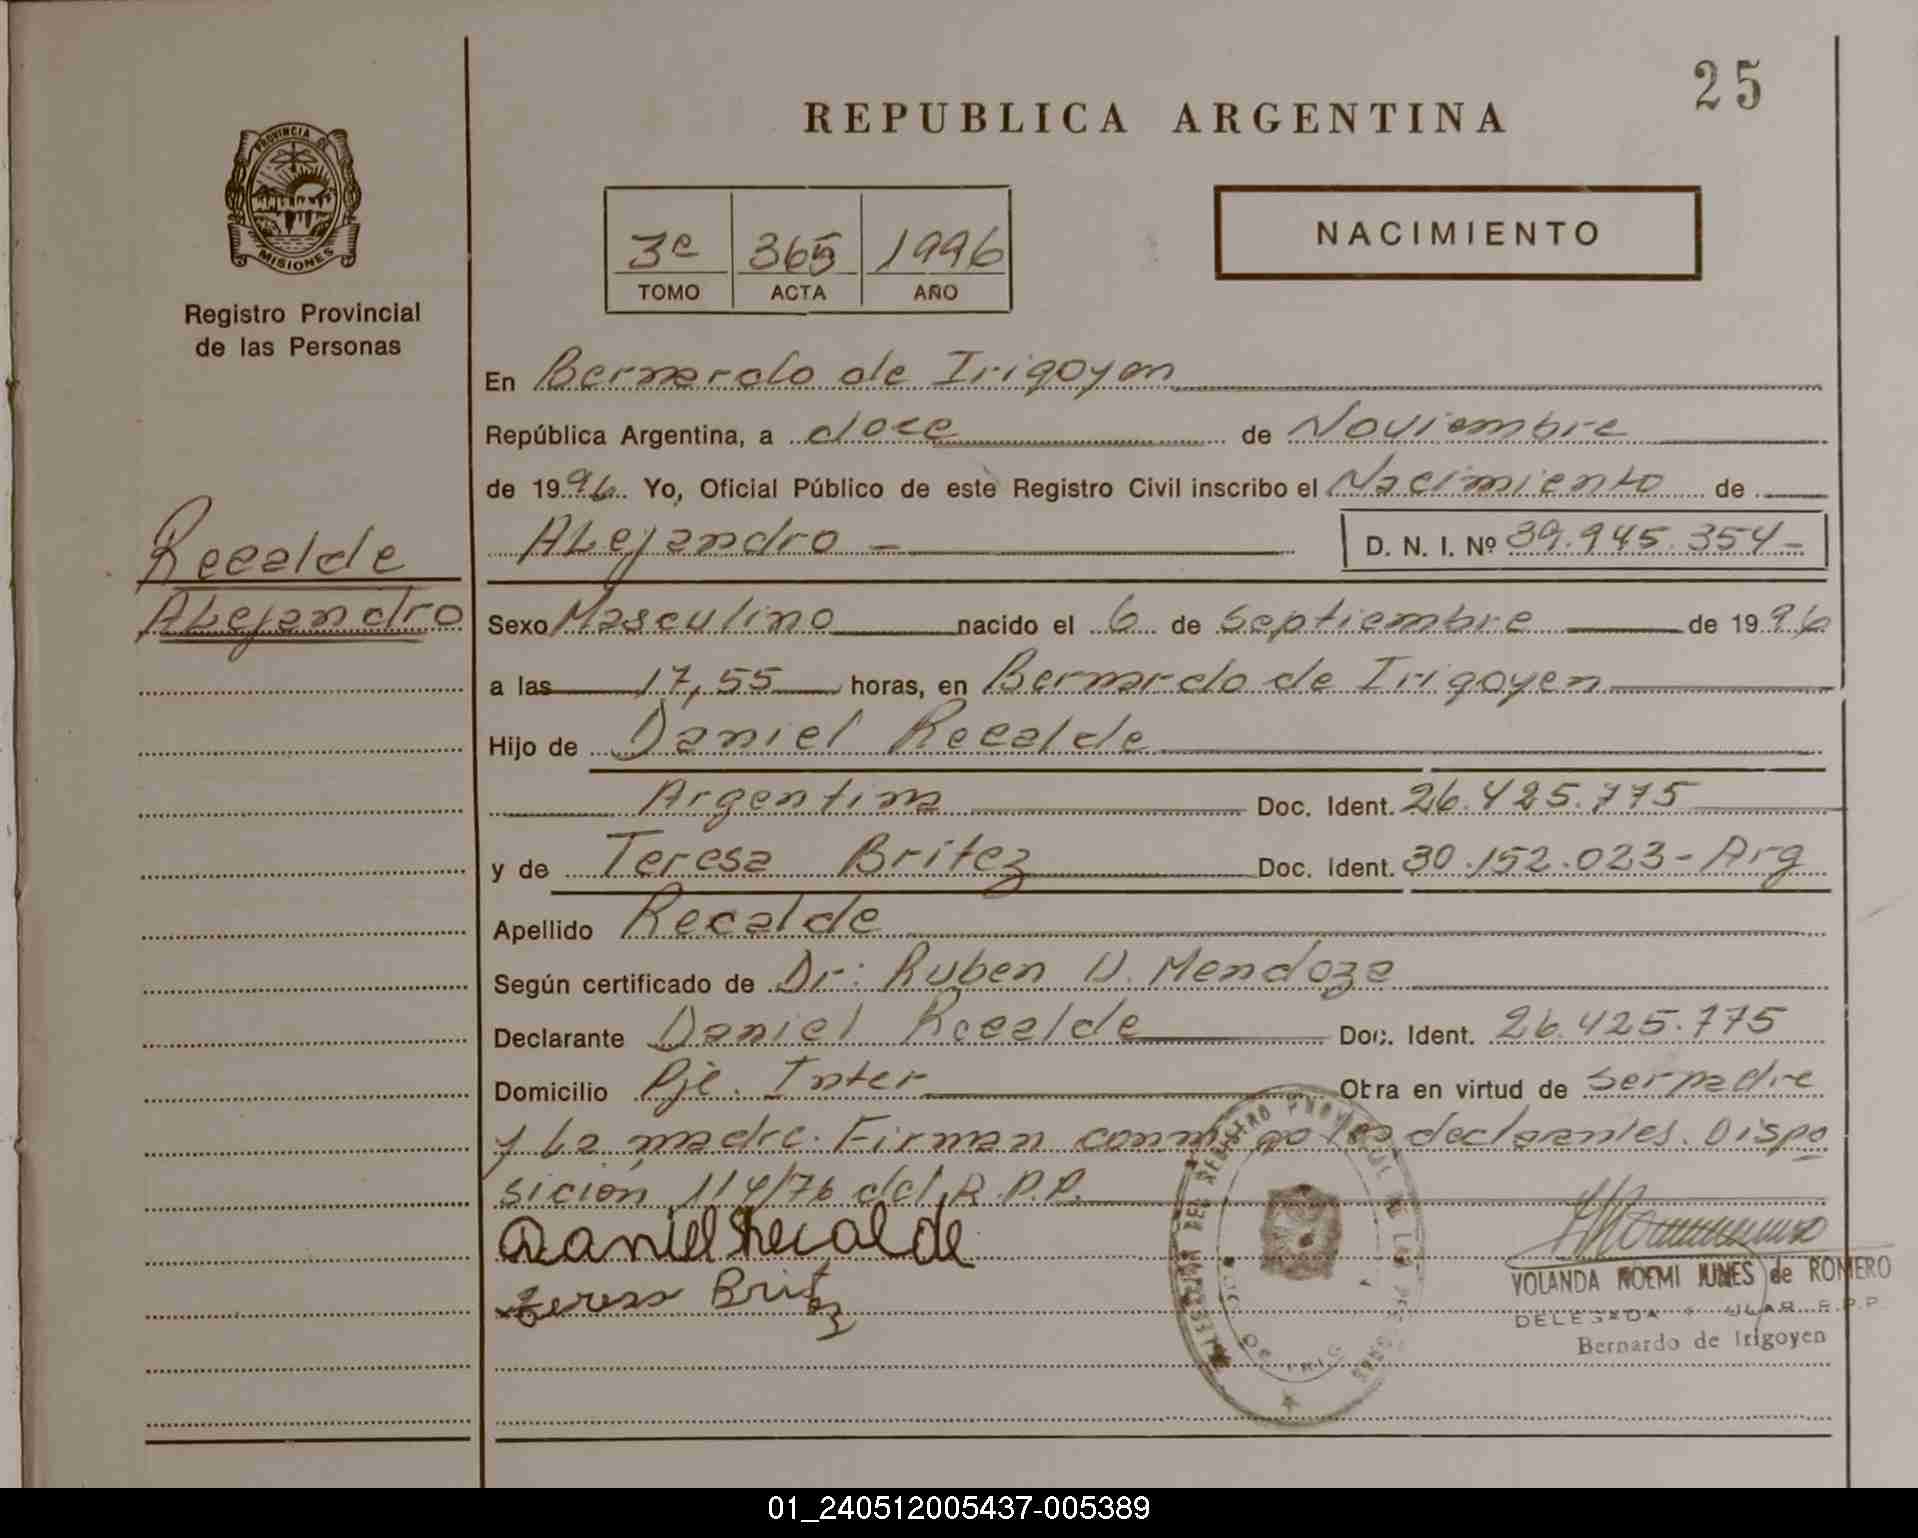 25
REPUBLICA ARGENTINA
PROVINCIA DE
MISIONES
Registro Provincial
de las Personas
3e 365 1996
TOMO ACTA AÑO
NACIMIENTO
En Bernardo de Irigoyen
República Argentina, a doce de Noviembre
de 1996. Yo, Oficial Público de este Registro Civil inscribo el Nacimiento de
Alejandro - D. N. I. Nº 39.945.354-
Recalde
Alejandro
Sexo Masculino nacido el 6 de Septiembre de 1996
a las 17,55 horas, en Bernardo de Irigoyen
Hijo de Daniel Recalde
Argentina Doc. Ident. 26.425.775
y de Teresa Britez Doc. Ident. 30.152.023- Arg
Apellido Recalde
Según certificado de Dr: Ruben D. Mendoza
Declarante Daniel Recalde Doc. Ident. 26.425.775
Domicilio Pje. Inter Otra en virtud de ser padre
y la madre. Firman conmigo los declarantes. Dispo
sición 114/76 del R.P.P.
Daniel Recalde
teresa Britez
YOLANDA NOEMI JUNES de ROMERO
DELEGADA R.P.P.
Bernardo de Irigoyen
01_240512005437-005389